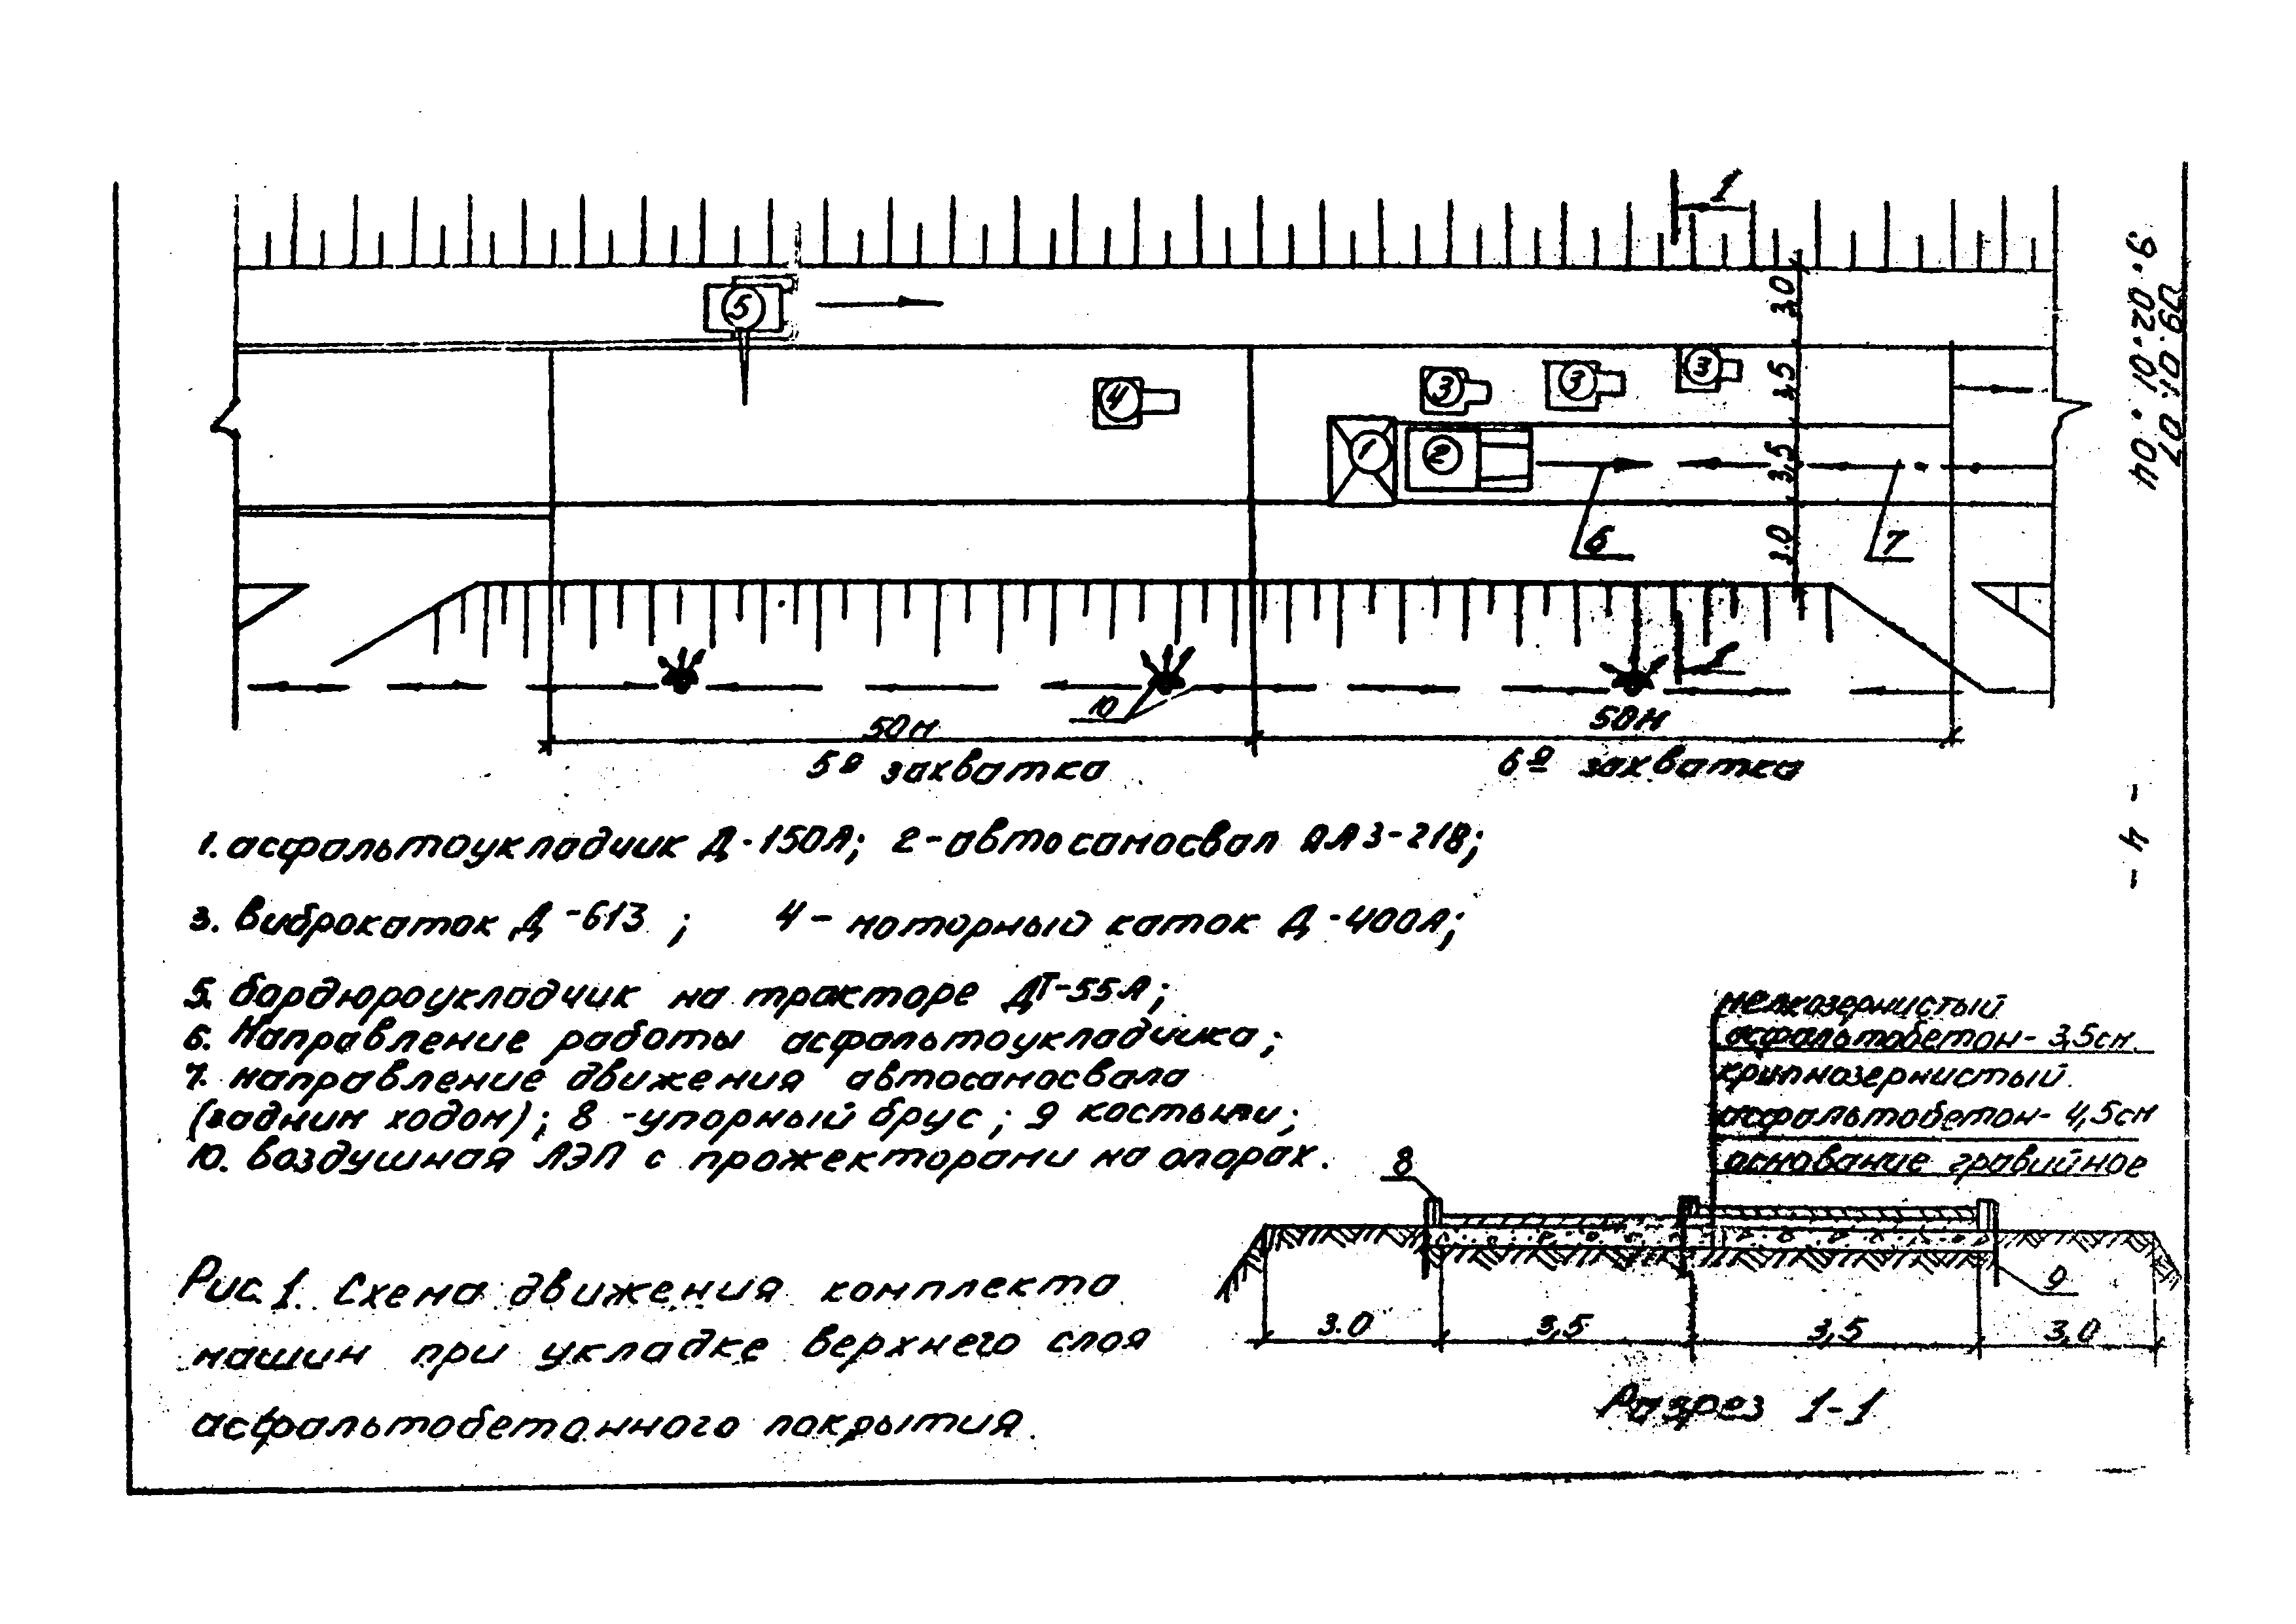 1
9.02.01.04
09.01.07
5
3,0
4
3
3
3
3,5
1
2
3,5
6
7
3.0
1
10
50м
50м
5ª захватка
6ª захватка
- 4 -
1. асфальтоукладчик Д-150А; 2-автосамосвал ЯАЗ-218;
3. Виброкаток Д-613 ; 4- моторный каток Д-400А;
5. бордюроукладчик на тракторе ДТ-55А;
6. Направление работы асфальтоукладчика;
7. направление движения автосамосвала
(задним ходом); 8 -упорный брус; 9 костыли;
10. воздушная ЛЭП с прожекторами на опорах.
мелкозернистый
асфальтобетон- 3,5см
крупнозернистый
асфальтобетон- 4,5см
основание гравийное
8
9
3.0 3,5 3,5 3,0
Разрез 1-1
Рис.1. Схема движения комплекта
машин при укладке верхнего слоя
асфальтобетонного покрытия.